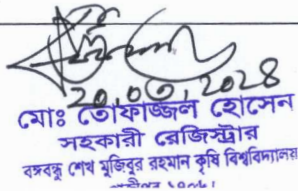 ২০.০৩.২০২৪
মোঃ তোফাজ্জল হোসেন
সহকারী রেজিস্ট্রার
বঙ্গবন্ধু শেখ মুজিবুর রহমান কৃষি বিশ্ববিদ্যালয়